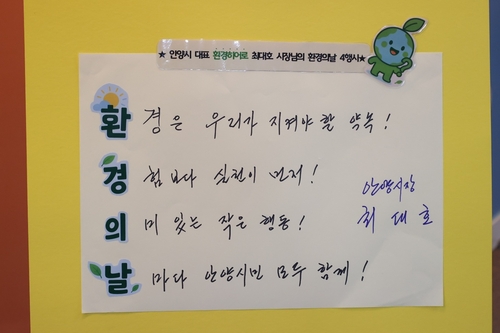 ★ 안양시 대표 환경히어로 최대호 시장님의 환경의날 4행시★
환 경은 우리가 지켜야할 약속!
경 험보다 실천이 먼저!
의 미 있는 작은 행동!
날 마다 안양시민 모두 함께!
안양시장
최대호